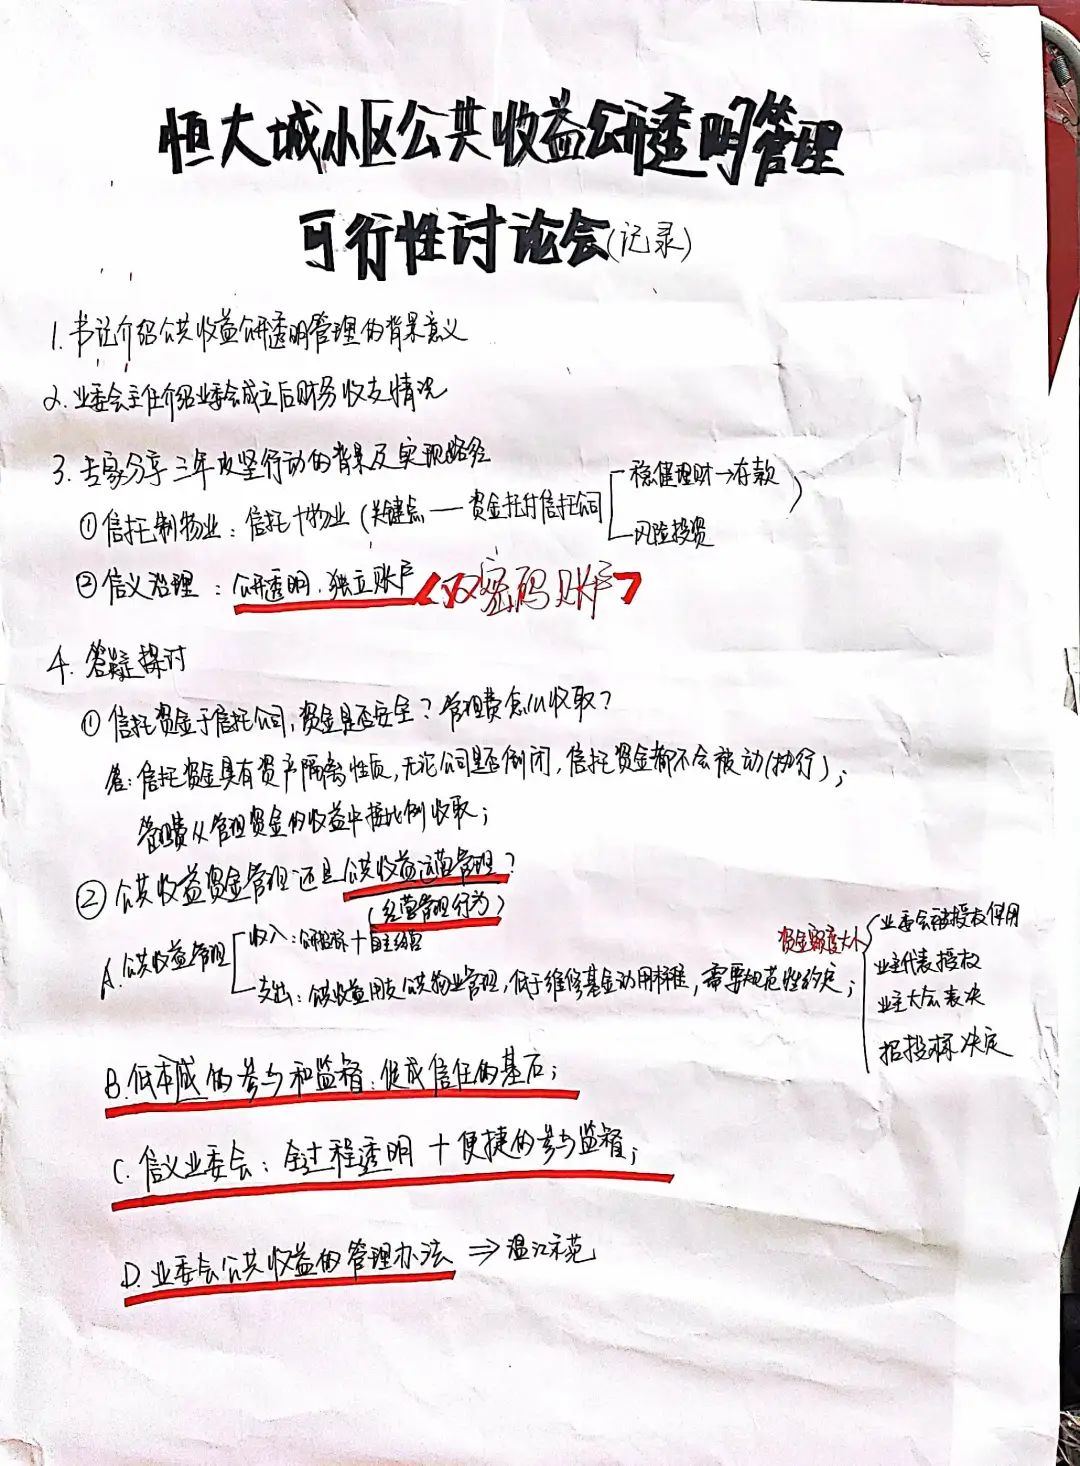 恒大城小区公共收益公开透明管理
可行性讨论会(记录)
1. 书记介绍公共收益公开透明管理的背景意义
2. 业委会主任介绍业委会成立后财务收支情况
3. 专家分享三年攻坚行动的背景及实现路径
①信托制物业：信托+物业(关键点——资金托付信托公司
稳健理财→存款
风险投资
)
②信义治理：公开透明、独立账户(双密码账户)
4. 答疑探讨
①信托资金于信托公司,资金是否安全？管理费怎么收取？
答:信托资金具有资产隔离性质,无论公司是否倒闭,信托资金都不会被动(执行)；
管理费从管理资金的收益中按比例收取；
②公共收益资金管理还是公共收益运营管理？
(经营管理行为)
A.公共收益管理
收入:公开招标+自主经营
支出：公共收益用支公共物业管理,低于维修基金动用标准,需要规范性约定；
资金额度大小
业委会被授权使用
业主代表授权
业主大会表决
招投标决定
B.低本成的参与和监督:促成信任的基石；
C.信义业委会：全过程透明+便捷的参与监督；
D.业委会公共收益的管理办法⇒温江示范